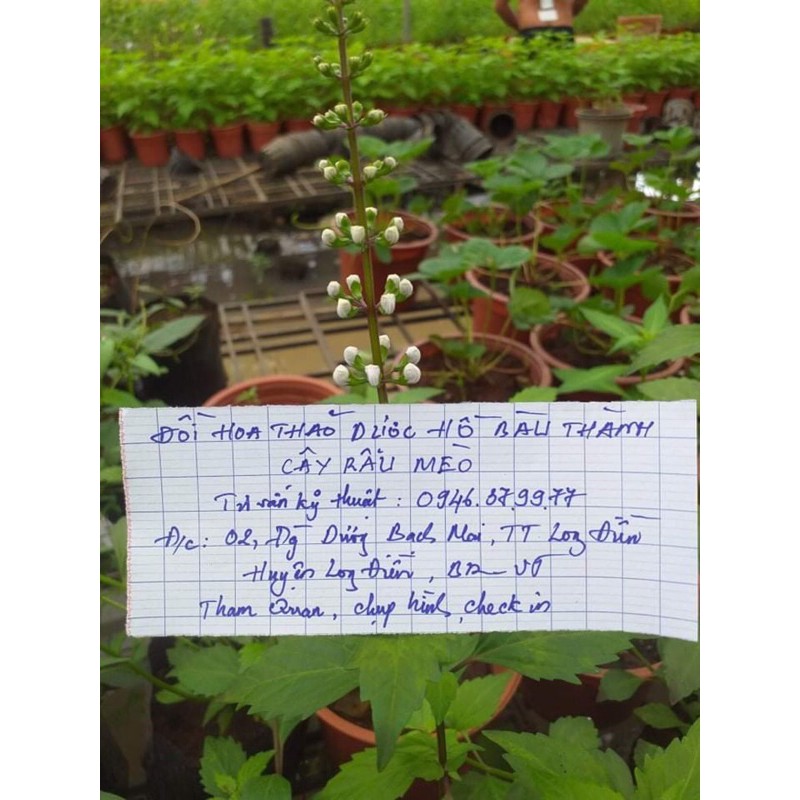 ĐỒI HOA THẢO DƯỢC HỒ BÀU THÀNH
CÂY RÂU MÈO
Tư vấn kỹ thuật : 0946.37.99.77
Đ/c : 02, Đg Dương Bạch Mai, TT Long Điền
Huyện Long Điền, BR-VT
Tham Quan, chụp hình, check in